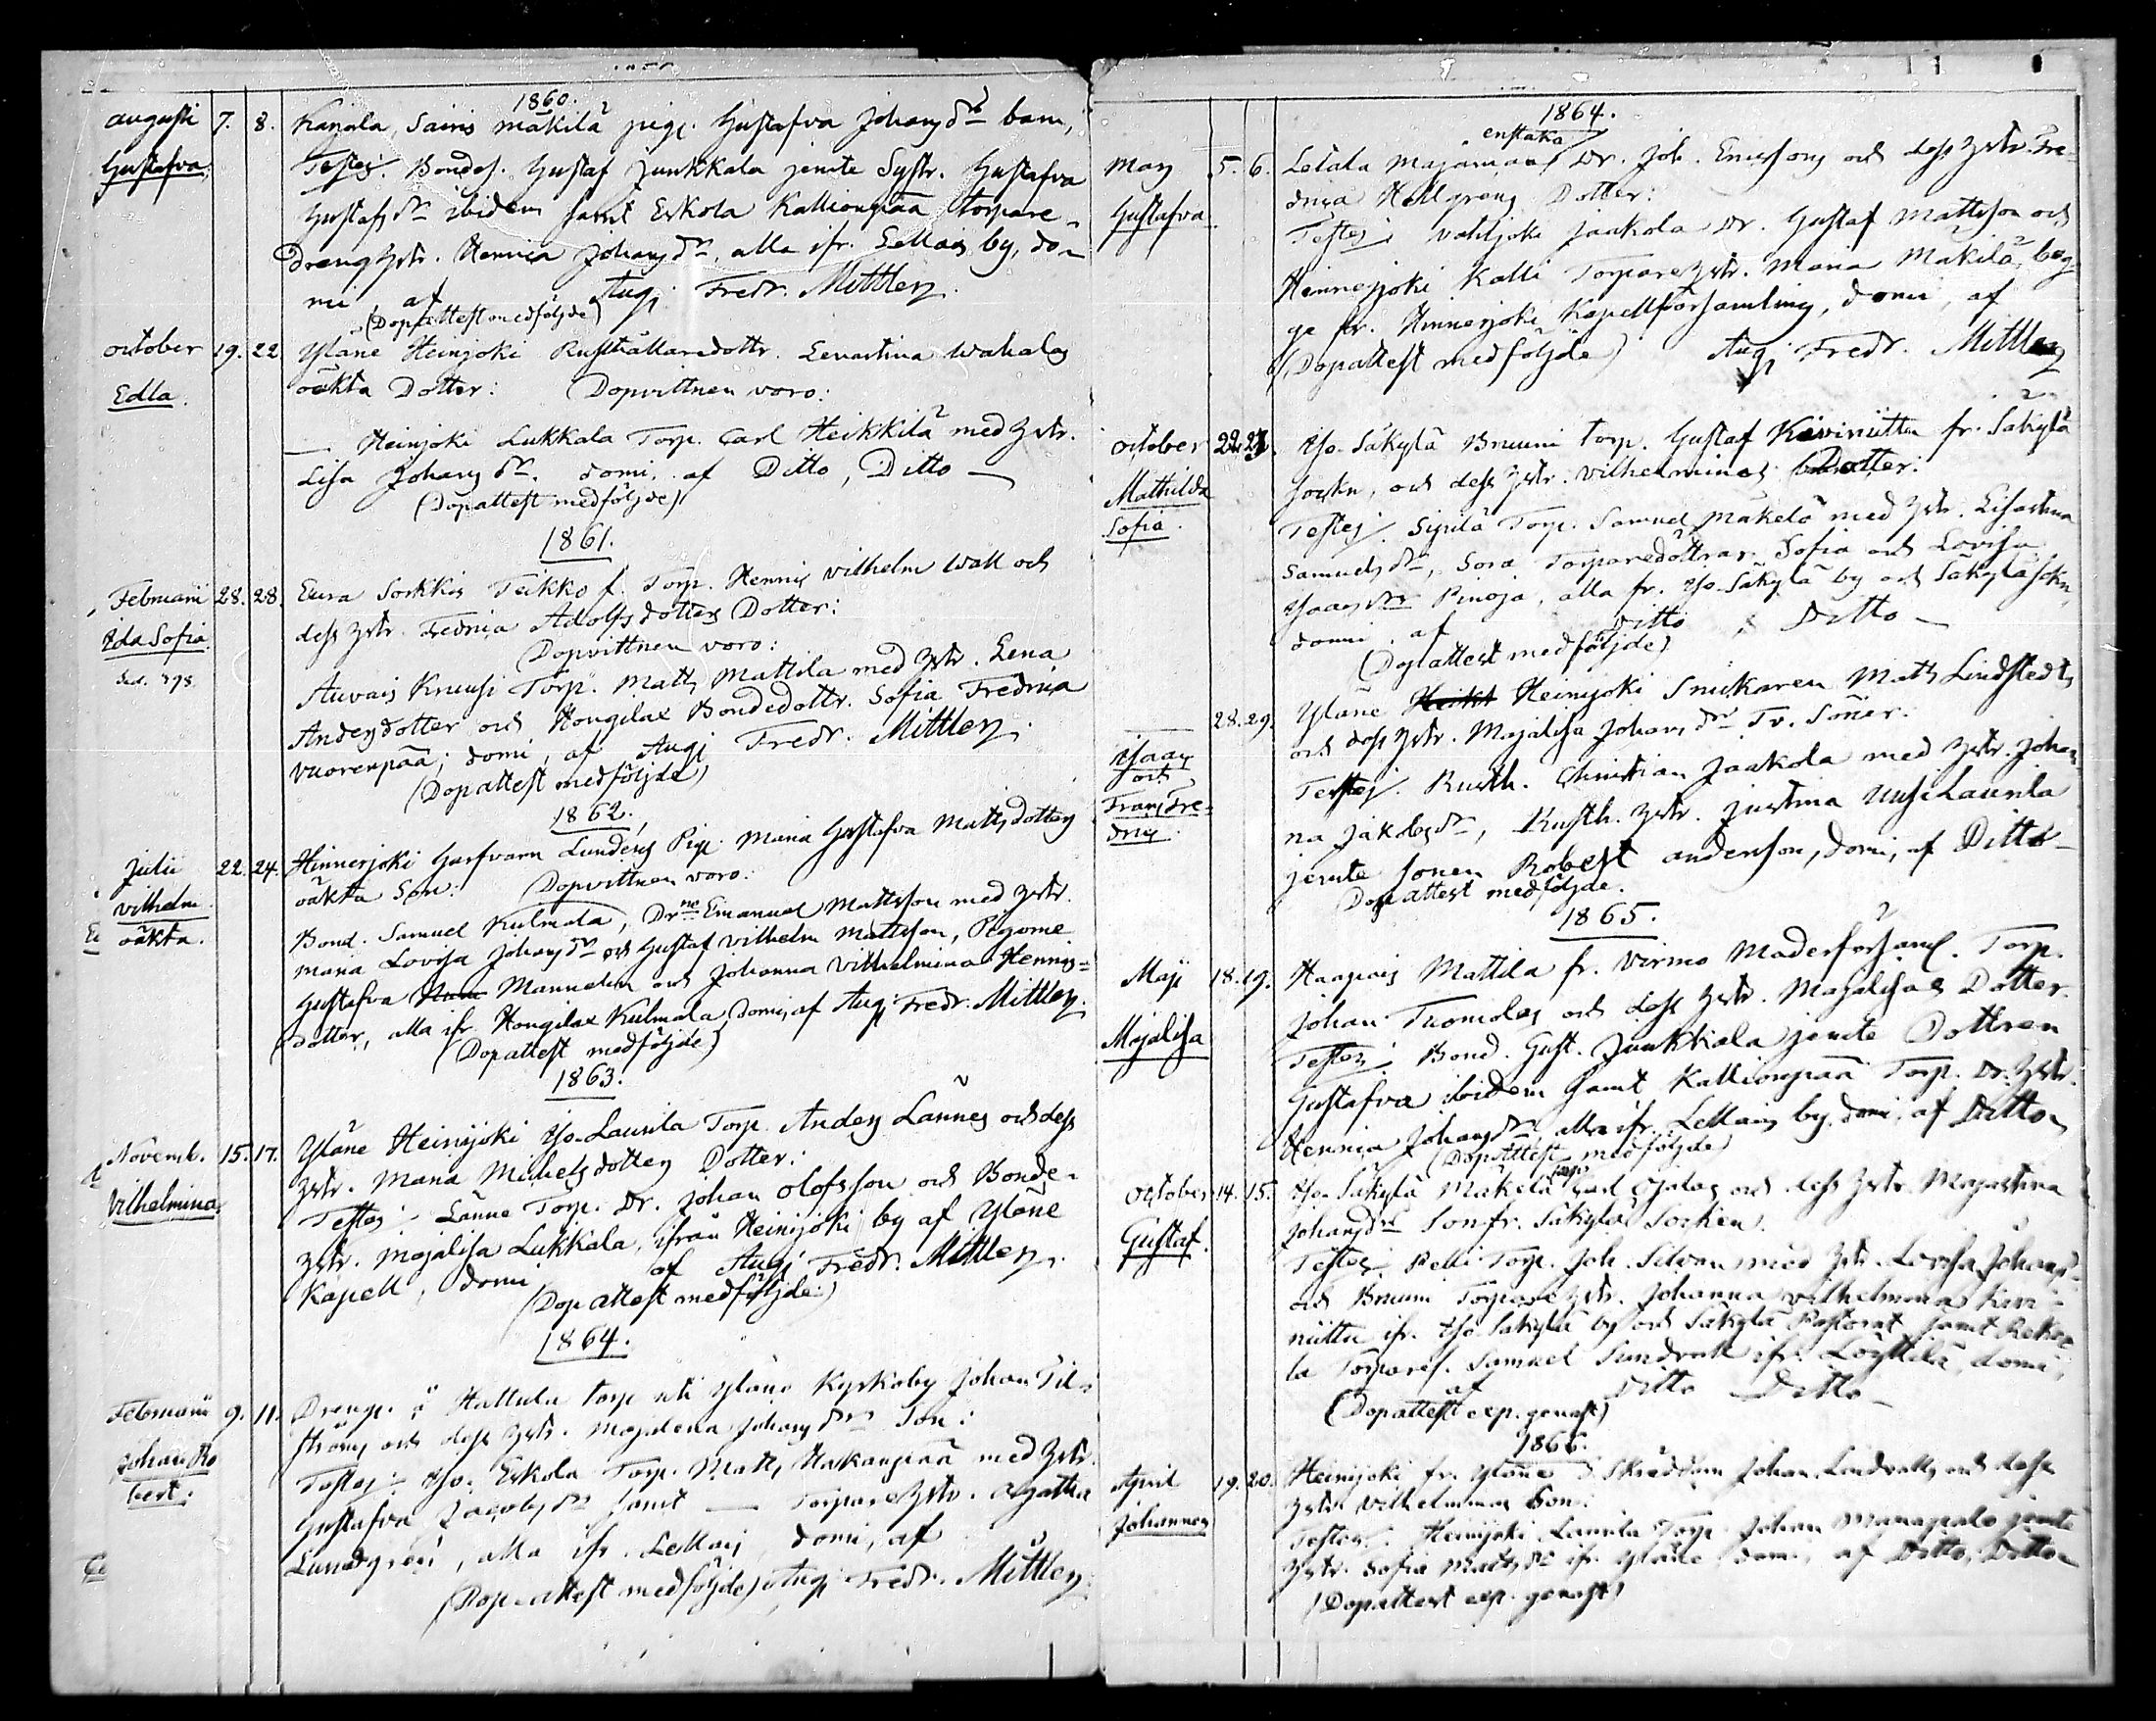 1860.
augusti 7. 8. Karjala, Sairis Mäkilä pig. Gustafva Johansdrs barn,
Gustafva, Testes: Bondes. Gustaf Junkkala jemte Systr. Gustafva
Gustafsdr ibidem samt Eskola Kalliongpää torpare-
dreng hstr. Henrica Johansdr, alla ifr. Lellais by, do-
mi af Aug. Fredr. Mittler.
(Dopattest medföljde)
October 19. 22. Yläne Heinjoki Rusthållaredottr. Lenastina Wahalas
Edla. oäkta Dotter: Dopvittnen voro:
— Heinjoki Lukkala Torp. Carl Heikkilä med hstr.
Lisa Johansdr. domi. af Ditto, Ditto —
(Dopattest medföljde)
1861.
Februarii 28. 28. Eura Sorkkis Teikko f. Torp. Henric Vilhelm Wall och
Ida Sofia. dess hstr. Fedrica Adolfsdotters Dotter:
Dopvittnen voro:
Auvais Knuusi Torp. Matts Mattila med hstr. Lena
Andersdotter och Hongilax Bondedottr. Sofia Fredrica
Vuorenpää; domi, af Aug. Fredr. Mittler.
(Dopattest medföljde)
1862.
Julii 22. 24. Hinnerjoki Garfvarn Lundens Pig. Maria Gustafva Mattsdotters
Vilhelm oäkta Son: Dopvittnen voro:
oäkta. Bond. Samuel Kulmala, Drne Emanuel Mattsson med hstr.
Maria Lovisa Johansdr och Gustaf Vilhelm Mattsson, Pigorne
Gustafva Mannelin och Johanna Vilhelmina Henrics-
dotter, alla ifr. Hongilax Kulmala, domi, af Aug. Fredr. Mittler.
(Dopattest medföljde)
1863.
Novemb. 15. 17. Yläne Heinijoki Iso-Laurila Torp. Anders Lännes och dess
Vilhelmina hstr. Maria Michelsdotters Dotter:
Testes: Länne Torp. Dr. Johan Olofsson och Bonde-
hstr. Majalisa Lukkala, ifrån Heinijoki by af Yläne
Kapell, domi af Aug. Fredr. Mittler.
(Dopattest medföljde)
1864.
Februarii 9. 11. Drenge. å Hallula torp uti Yläne Kyrkoby Johan Til-
Johan Ro ströms och dess hstr. Majalena Johansdrs Son:
bert. Testes: Iso-Eskola Torp. Matts Hakanpää med hstr.
Gustafva Jacobsdr samt — Torparehstr. Agatha
Lundgren, alla ifr. Lellais domi, af
(Dopattest medföljde) Aug. Fredr. Mittler
1864.
enstaka
Maij 5. 6. Letala Dr. Joh. Ericssons och dess hstr. Fre-
Gustafva drica Hellgrens Dotter:
Testes: Vahljoki Jaakola Dr. Gustaf Mattsson och
Hinnerjoki Kalli Torparehstr. Maria Mäkilä, beg-
ge fr. Hinnerjoki Kapellförsamling, domi, af
(Dopattest medföljde) Aug. Fredr. Mittler
October 22. 23. Iso-Säkylä Bruuni torp. Gustaf Kiviniittu fr. Säkylä
Mathilda Sockn, och dess hstr. Vilhelminas Dotter:
Sofia. Testes: Sipilä Torp. Samuel Mäkelä med hstr. Lisastina
Samuelsdr, Sora Torparedöttrar Sofia och Lovisa
Isaacsdr Pinoja, alla fr. Iso-Säkylä by och Säkylä sokn,
domi, af Ditto, Ditto —
(Dopattest medföljde)
28. 29. Yläne Heinijoki Snickaren Matts Lindstedts
Isaac och dess hstr. Majalisa Johansdrs Tv. Söner:
och Testes: Rusth. Christian Jaakola med hstr. Johan-
Frans Fre- na Jakobsdr, Rusth. hstr. Justina Uusi Laurila
dric. jemte Sonen Robert Andersson, domi, af Ditto —
Dopattest medföljde.
1865.
Maji 18. 19. Haapais Mattila fr. Virmo Moderförsaml. Torp.
Johan Tuomolas och dess hstr. Majalisas Dotter.
Majalisa Testes: Bond. Gust. Junkkala jemte Dottren
Gustafva ibidem samt Kalliongpää Torp. Dr. hstr.
Henrica Johansdr, alla ifr. Lellais by, domi, af Ditto
(Dopattest medföljde)
October 14. 15. Iso-Säkylä Mäkelä torp. Carl Ojalas och dess hstr. Majastina
Gustaf. Johansdrs Son fr. Säkylä Sockn.
Testes: Pelli Torp. Joh. Silvan med hstr. Lovisa Johansdr
och Bruuni Torparehstr. Johanna Vilhelmina Kivi-
niittu ifr. Iso-Säkylä by och Säkylä Pastorat samt
la Torpares. Samuel Sundvall ifr. Löyttilä, domi,
af Ditto Ditto —
(Dopattest exp. genast)
1866.
April 19. 20. Heinijoki fr. Yläne Skräddarn Johan Lindvalls och dess
Johannes hstr. Vilhelminas Son:
Testes: Heinijoki Laurila Torp. Johan jemte
hstr. Sofia Mattsdr ifr. Yläne domi, af Ditto, Ditto
(Dopattest exp. genast)